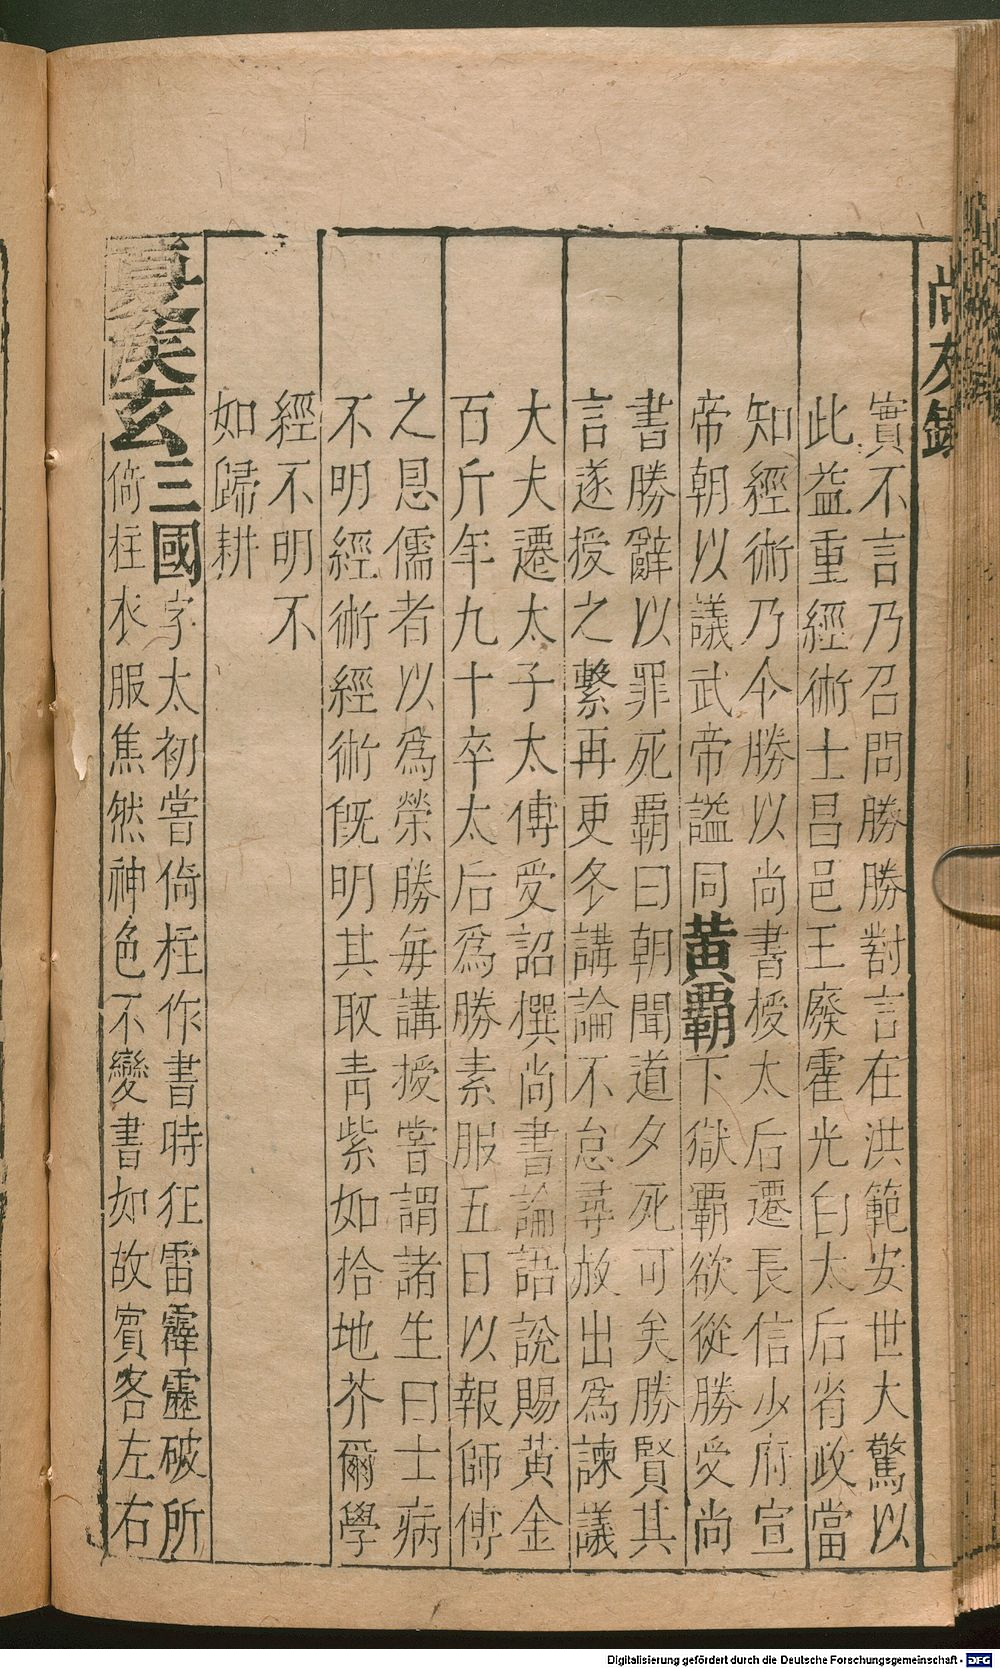 尚友錄
實不言乃召問勝勝對言在洪範安世大驚以
此益重經術士昌邑王廢霍光白太后省政當
知經術乃令勝以尚書授太后遷長信少府宣
帝朝以議武帝謚同黃霸下獄霸欲從勝受尚
書勝辭以罪死霸曰朝聞道夕死可矣勝賢其
言遂授之繫再更冬講論不怠尋赦出爲諫議
大夫遷太子太傅受詔撰尚書論語說賜黃金
百斤年九十卒太后爲勝素服五日以報師傅
之恩儒者以爲榮勝每講授嘗謂諸生曰士病
不明經術經術旣明其取青紫如拾地芥爾學
經不明不
如歸耕
夏侯玄三國字太初嘗倚柱作書時狂雷霹靂破所
倚柱衣服焦然神色不變書如故賓客左右
Digitalisierung gefördert durch die Deutsche Forschungsgemeinschaft - DFG